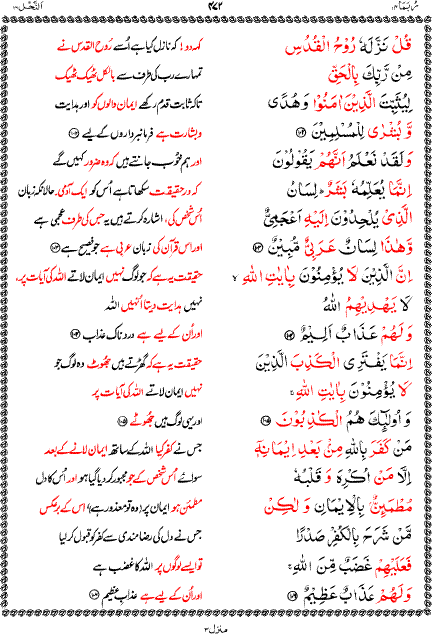 رُبَمَا ۱۴ ۴۷۲ اَلنَّحْل ۱۶
قُلْ نَزَّلَهٗ رُوْحُ الْقُدُسِ
مِنْ رَّبِّكَ بِالْحَقِّ
لِيُثَبِّتَ الَّذِيْنَ اٰمَنُوْا وَهُدًى
وَّ بُشْرٰى لِلْمُسْلِمِيْنَ ۝۱۰۲
وَلَقَدْ نَعْلَمُ اَنَّهُمْ يَقُوْلُوْنَ
اِنَّمَا يُعَلِّمُهٗ بَشَرٌ ؕ لِسَانُ
الَّذِىْ يُلْحِدُوْنَ اِلَيْهِ اَعْجَمِىٌّ
وَّهٰذَا لِسَانٌ عَرَبِىٌّ مُّبِيْنٌ ۝۱۰۳
اِنَّ الَّذِيْنَ لَا يُؤْمِنُوْنَ بِاٰيٰتِ اللّٰهِ ۙ
لَا يَهْدِيْهِمُ اللّٰهُ
وَلَهُمْ عَذَابٌ اَلِيْمٌ ۝۱۰۴
اِنَّمَا يَفْتَرِى الْكَذِبَ الَّذِيْنَ
لَا يُؤْمِنُوْنَ بِاٰيٰتِ اللّٰهِ ۚ
وَ اُولٰٓئِكَ هُمُ الْكٰذِبُوْنَ ۝۱۰۵
مَنْ كَفَرَ بِاللّٰهِ مِنْۢ بَعْدِ اِيْمَانِهٖۤ
اِلَّا مَنْ اُكْرِهَ وَ قَلْبُهٗ
مُطْمَئِنٌّۢ بِالْاِيْمَانِ وَ لٰكِنْ
مَّنْ شَرَحَ بِالْكُفْرِ صَدْرًا
فَعَلَيْهِمْ غَضَبٌ مِّنَ اللّٰهِ ۚ
وَلَهُمْ عَذَابٌ عَظِيْمٌ ۝۱۰۶
کہہ دو! کہ نازل کیا ہے اُسے رُوح القدس نے
تمہارے رب کی طرف سے بالکل ٹھیک ٹھیک
تاکہ ثابت قدم رکھے ایمان والوں کو اور ہدایت
و بشارت ہے فرمانبرداروں کے لیے ۝۱۰۲
اور ہم خوُب جانتے ہیں کہ وہ ضرور کہیں گے
کہ درحقیقت سکھاتا ہے اُس کو ایک آدمی۔ حالانکہ زبان
اُس شخص کی، اشارہ کرتے ہیں یہ جس کی طرف عجمی ہے
اور اس قرآن کی زبان عربی ہے جو فصیح ہے ۝۱۰۳
حقیقت یہ ہے کہ جو لوگ نہیں ایمان لاتے اللہ کی آیات پر،
نہیں ہدایت دیتا اُنہیں اللہ
اور اُن کے لیے ہے درد ناک عذاب ۝۱۰۴
حقیقت یہ ہے کہ گھڑتے ہیں جھُوٹ وہ لوگ جو
نہیں ایمان لاتے اللہ کی آیات پر
اور یہی لوگ ہیں جھُوٹے ۝۱۰۵
جس نے کفر کیا اللہ کے ساتھ ایمان لانے کے بعد
سوائے اُس شخص کے جو مجبور کر دیا گیا ہو اور اُس کا دل
مطمئن ہو ایمان پر (وہ تو معذور ہے) اس کے برعکس
جس نے دل کی رضامندی سے کفر کو قبول کر لیا
تو ایسے لوگوں پر اللہ کا غضب ہے
اور اُن کے لیے ہے عذابِ عظیم ۝۱۰۶
منزل ۳